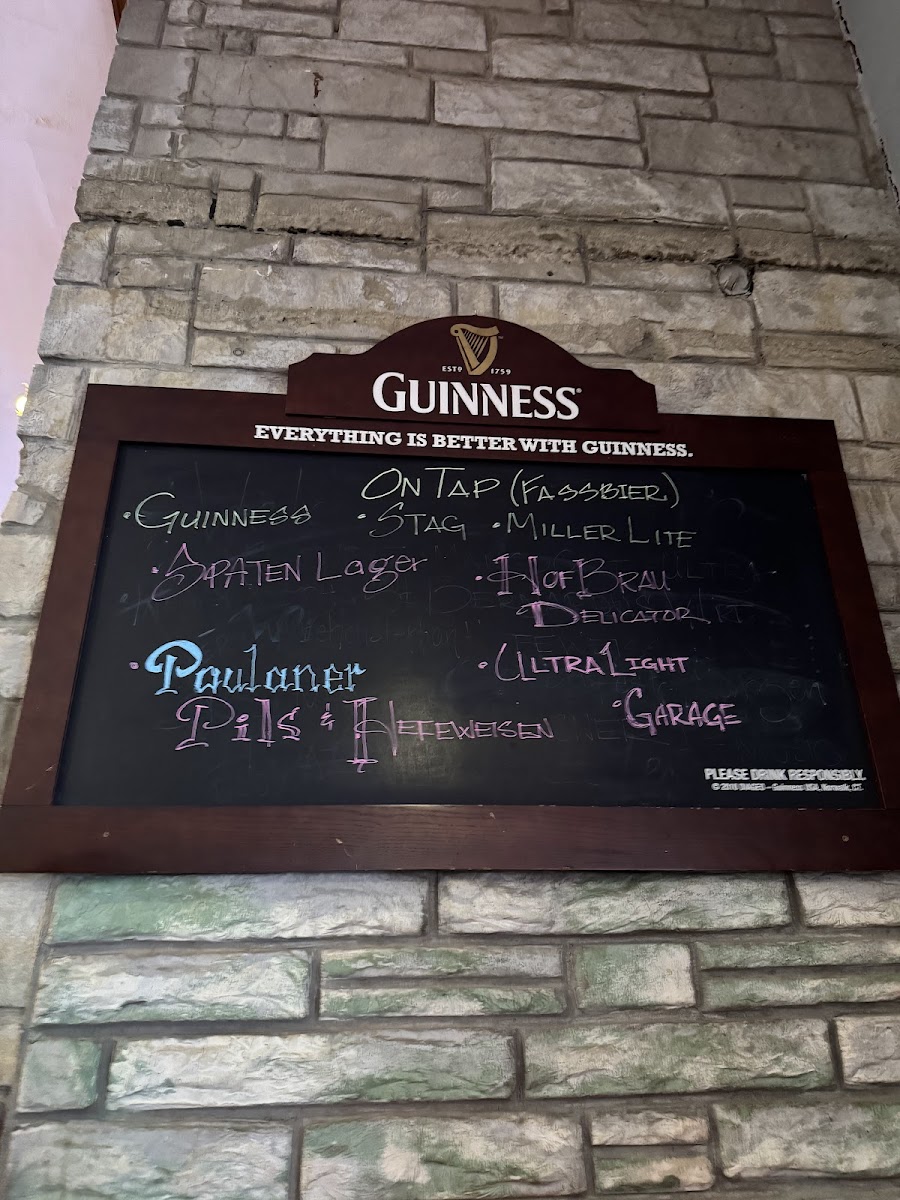 ESTD 1759
GUINNESS®
EVERYTHING IS BETTER WITH GUINNESS.
ON TAP (FASSBIER)
• GUINNESS • STAG • MILLER LITE
• SPATEN Lager • HOFBRAU
DELICATOR
• Paulaner • ULTRA LIGHT
Pils & HEFEWEISEN • GARAGE
PLEASE DRINK RESPONSIBLY.
Guinness USA, Norwalk, CT.